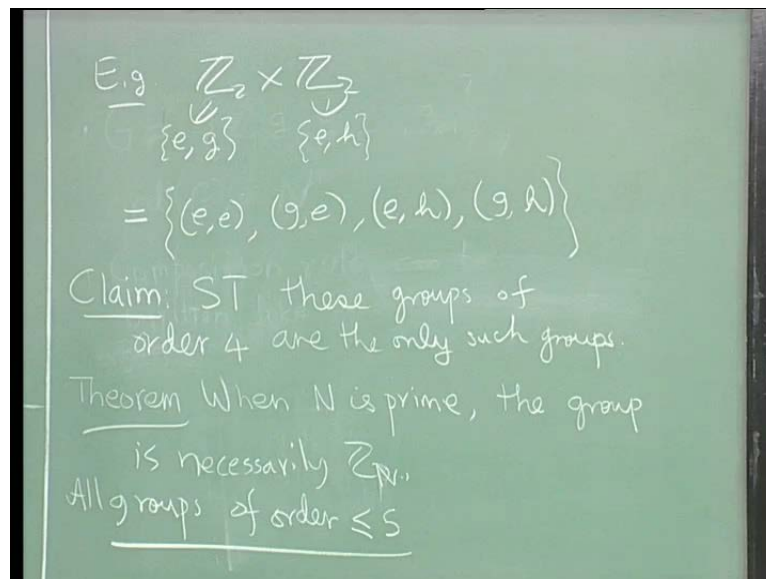 E.g. ℤ₂ × ℤ₂
{e, g} {e, h}
= {(e,e), (g,e), (e,h), (g,h)}
Claim: ST these groups of
order 4 are the only such groups.
Theorem When N is prime, the group
is necessarily ℤ_N.
All groups of order ≤ 5